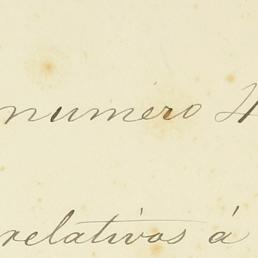 numero 4
relativos á